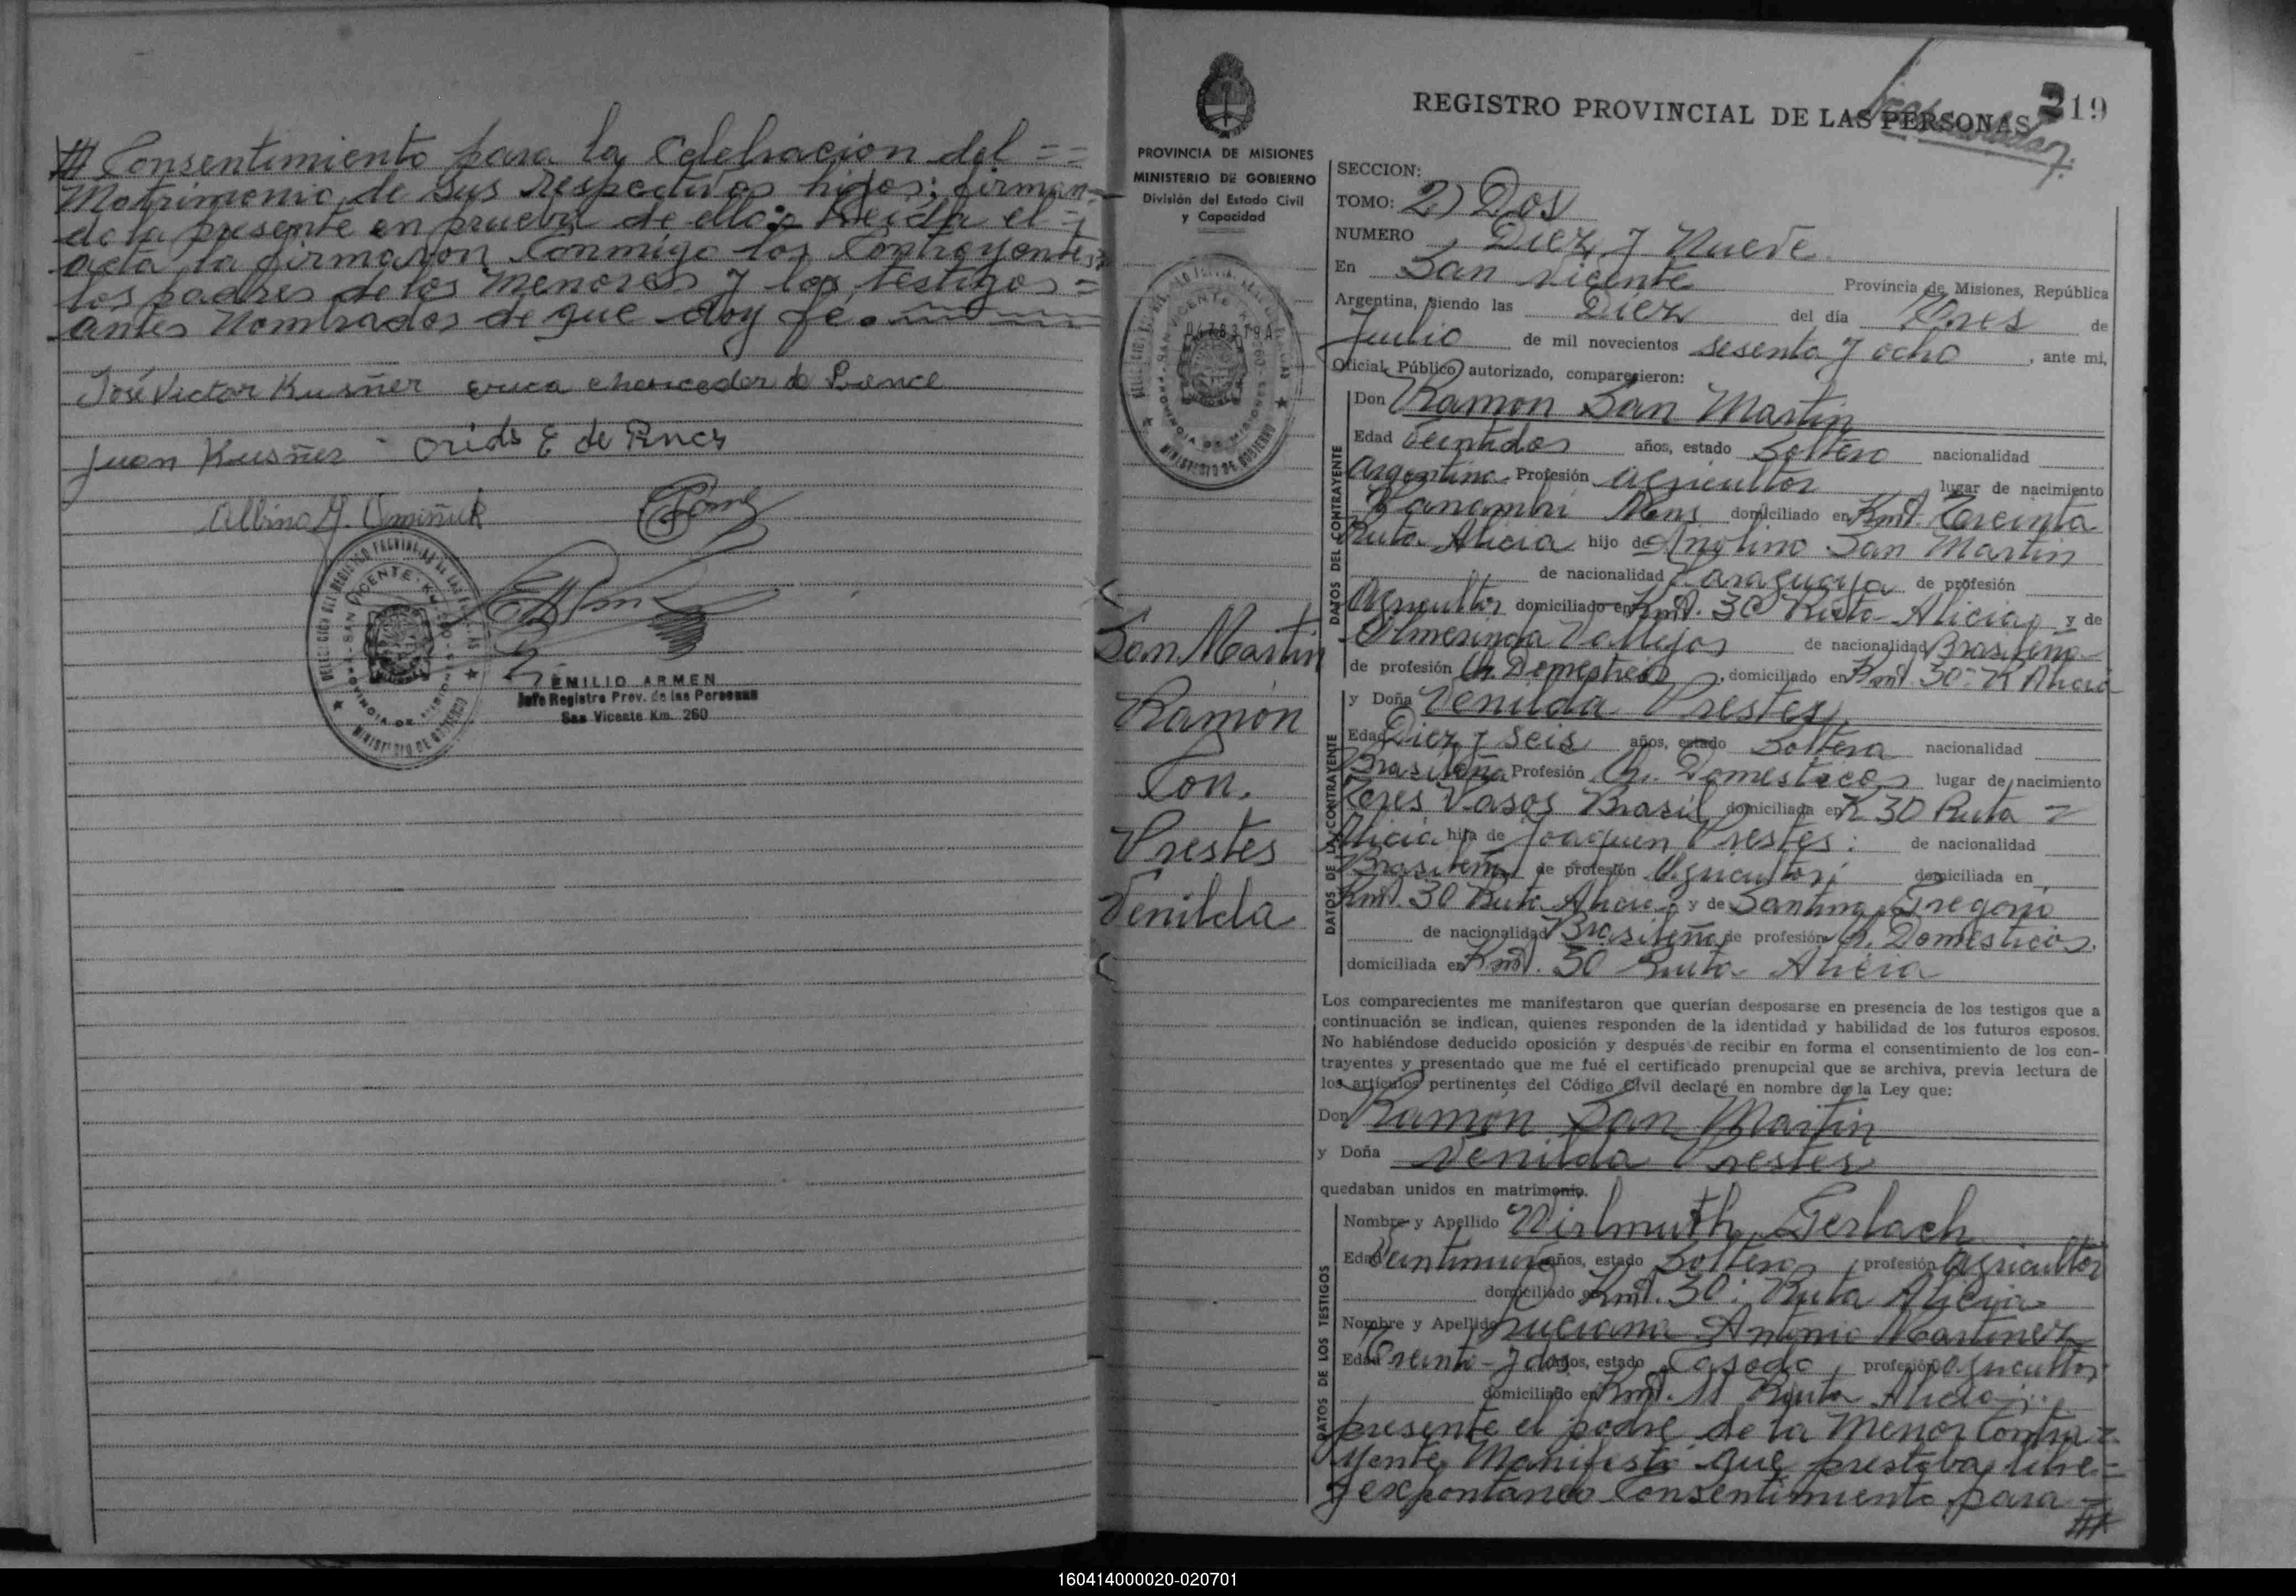 /// Consentimiento para la Celebracion del = =
Matrimonio de Sus Respectivos hijos; firman-
do la presente en prueba de ello: Leida el =
acta, la firmaron Conmigo los Contrayentes
los padres de los Menores y los testigos =
antes Nombrados de que doy fé.
José Victor Kusñer
Juan Kusñer -
EMILIO ARMEN
Jefe Registro Prov. de las Personas
San Vicente Km. 260
PROVINCIA DE MISIONES
MINISTERIO DE GOBIERNO
División del Estado Civil
y Capacidad
San Martin
Ramón
Con.
Prestes
Venilda
REGISTRO PROVINCIAL DE LAS PERSONAS 219
SECCION:
TOMO: 2) Dos
NUMERO Diez y Nueve
En San Vicente Provincia de Misiones, República
Argentina, siendo las Diez del día Tres de
Julio de mil novecientos sesenta y ocho, ante mi,
Oficial Público autorizado, comparecieron:
DATOS DEL CONTRAYENTE
Don Ramon San Martin
Edad Veintidos años, estado Soltero nacionalidad
Argentina Profesión Agricultor lugar de nacimiento
Panambi Mnes domiciliado en Kmt. Treinta
Ruta Alicia hijo de San Martin
de nacionalidad Paraguaya de profesión
Agricultor domiciliado en Kmt. 30 Ruta Alicia y de
Olmerinda Vallejos de nacionalidad Brasileña
de profesión Q. Domesticos, domiciliado en Kmt. 30 = R Alicia
DATOS DE LA CONTRAYENTE
y Doña Venilda Prestes,
Edad Diez y Seis años, estado Soltera nacionalidad
Brasileña Profesión Q. Domesticos lugar de nacimiento
Tres Pasos Brasil domiciliada en K 30 Ruta =
Alicia hija de Joaquin Prestes: de nacionalidad
Brasileña de profesión Agricultor; domiciliada en
Kmt. 30 Ruta Alicia y de Santina Gregorio
de nacionalidad Brasileña de profesión Q. Domesticos.
domiciliada en Kmt. 30 Ruta Alicia
Los comparecientes me manifestaron que querían desposarse en presencia de los testigos que a
continuación se indican, quienes responden de la identidad y habilidad de los futuros esposos.
No habiéndose deducido oposición y después de recibir en forma el consentimiento de los con-
trayentes y presentado que me fué el certificado prenupcial que se archiva, previa lectura de
los artículos pertinentes del Código Civil declaré en nombre de la Ley que:
Don Ramón San Martin
y Doña Venilda Prestes
quedaban unidos en matrimonio.
DATOS DE LOS TESTIGOS
Nombre y Apellido Wirlmuth Gerlach
Edad Veintinueve años, estado Soltero, profesión Agricultor
domiciliado en Kmt. 30: Ruta Alicia
Nombre y Apellido Luciano Antonio Martinez
Edad Treinta y dos años, estado Casado, profesión Agricultor
domiciliado en Kmt. 11 Ruta Alicia;
presente el padre de la Menor Contra =
yente, Manifestó que prestaba, libre =
y expontaneo Consentimiento para =
///
160414000020-020701